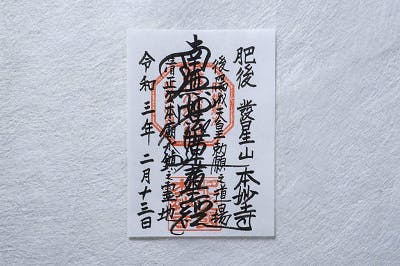 肥後 發星山 本妙寺
後陽成天皇勅願之道場
南無妙法蓮華経
清正公本廟鎮之霊地
令和三年二月十三日